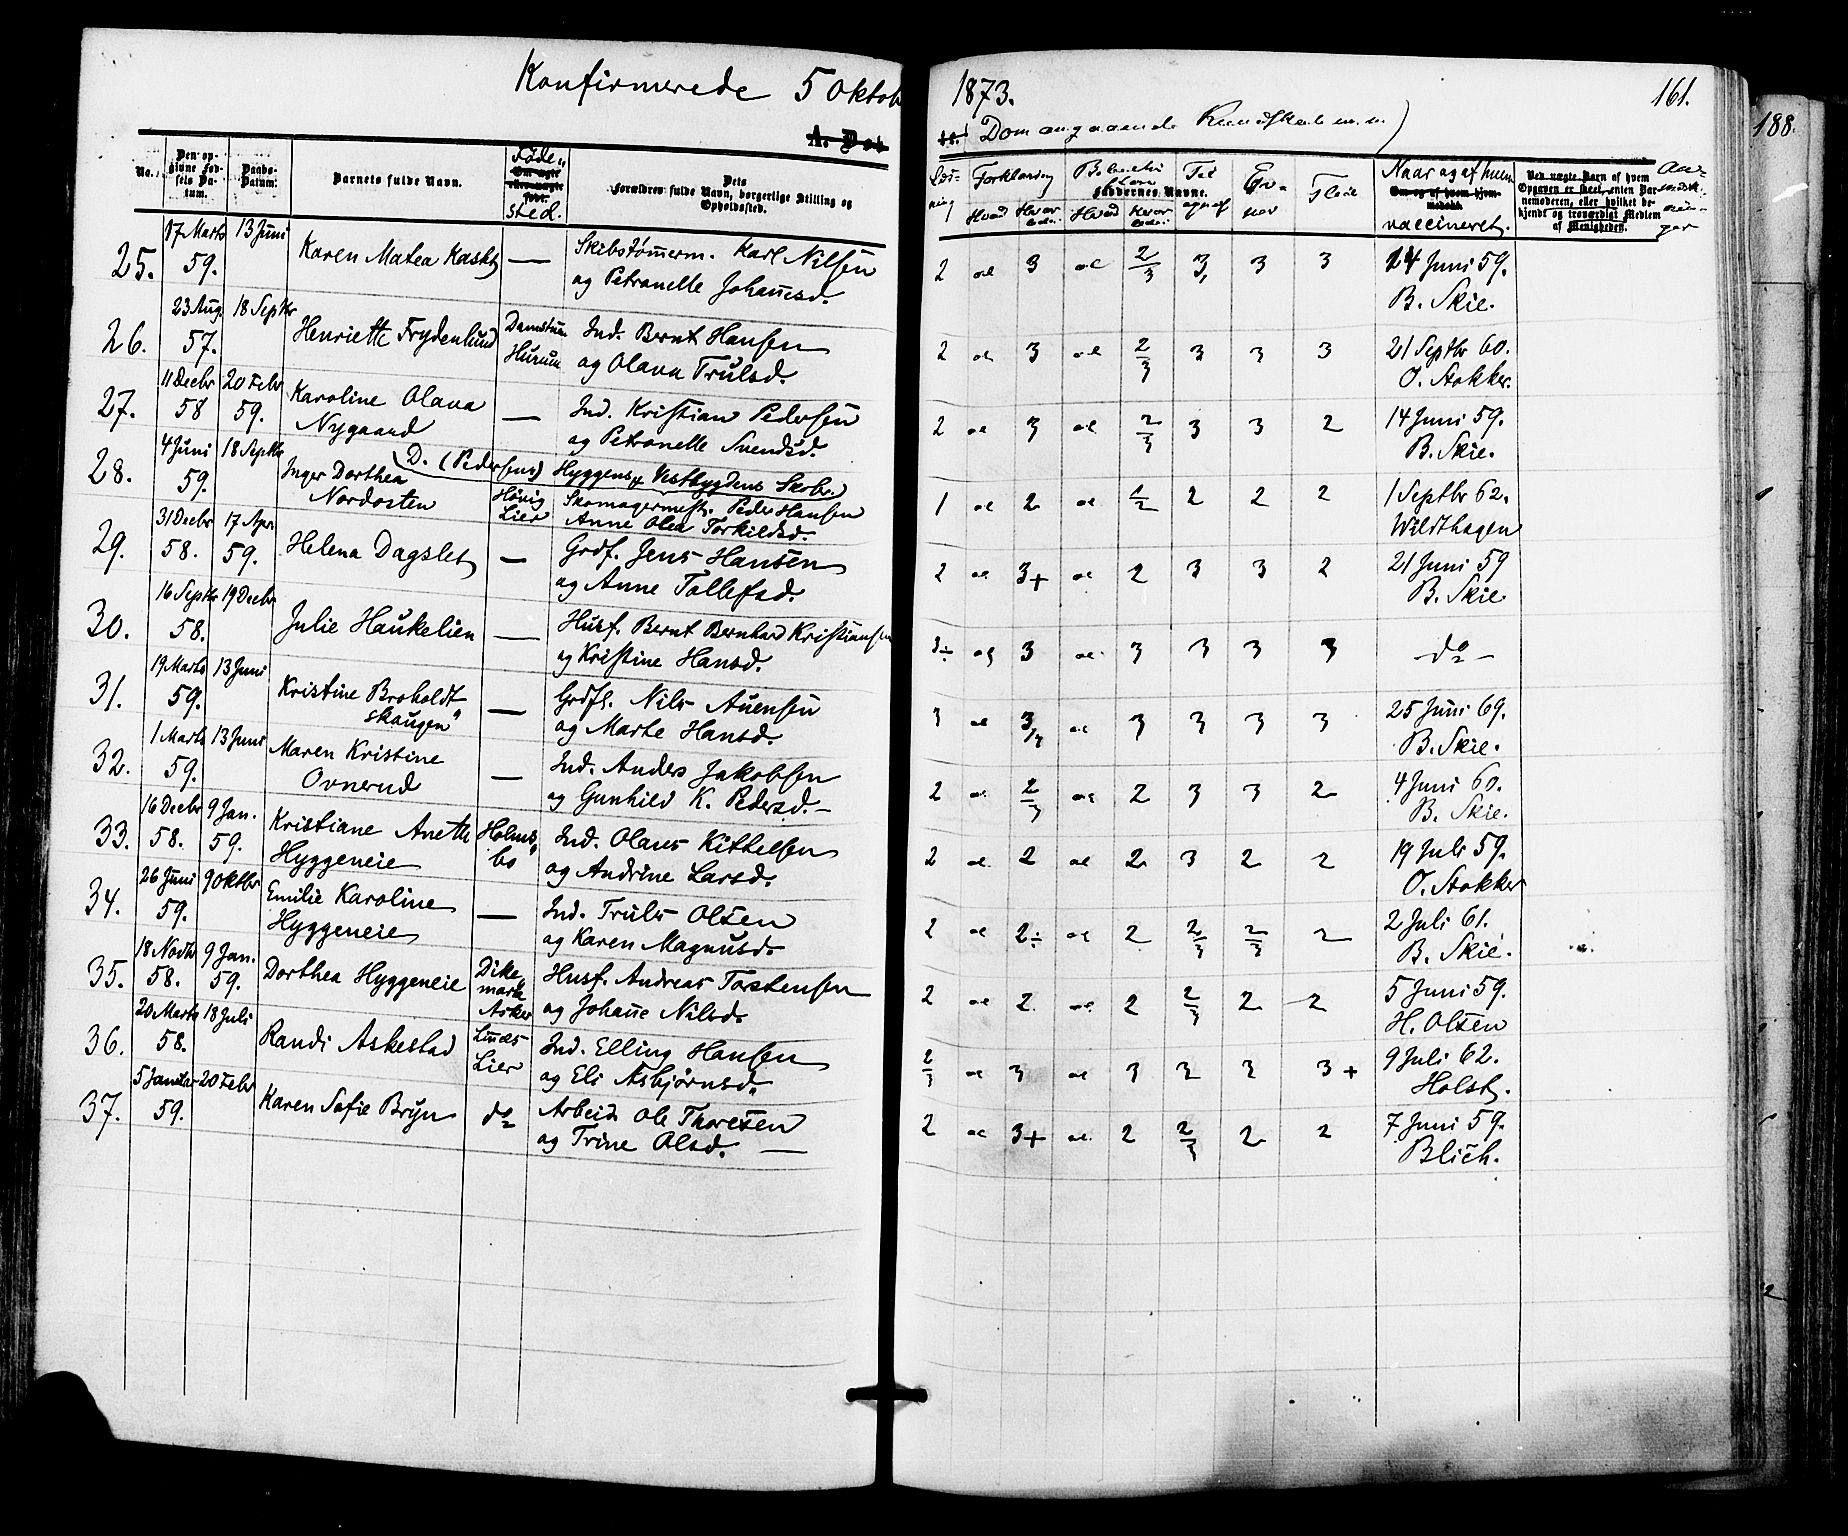 Konfirmerede 5 Oktob
1873.
161.
188.
A. Dø
Dom angaaende Kundskab m.m)
No.
Den opgivne Fødsels Datum.
Daabs-Datum.
Barnets fulde Navn.
Føde-
Om ægte eller uægte født.
sted.
Dets Forældres fulde Navn, borgerlige Stilling og Opholdssted.
Læsning
Forklaring
Hvad Hvordan
Faddernes Navne.
Hvad Hvordan
Evner
Flid
Naar og af hvem
vaccineret.
Ved uægte Barn af hvem Opgaven er skeet, enten Barnemoderen, eller hvilket bekjendt og troværdigt Medlem af Menigheden.
25. 17 Marts 59. 13 Juni Karen Matea Kaskt — Skibstømmerm. Karl Nilsen
og Petronelle Johannesd.
2 al 3 al 2/3 3 3 3 14 Juni 59.
B. Skie.
26. 23 Aug. 57. 18 Septbr Henriette Frydenlund Hurum Ind. Bernt Hansen
og Olava Trulsd.
2 al 3 al 2/3 3 3 3 21 Septbr 60.
O. Stokker.
27. 11 Decbr 58 20 Febr 59. Karoline Olava
Nygaard — Ind. Kristian Pedersen
og Petronelle Svendsd.
2 al 3 al 2/3 3 3 2 14 Juni 59.
B. Skie.
D. (Pedersens) Hyggens, Vestbygdens Skobr.)
28. 4 Juni 59. 18 Septbr Inger Dorthea
Nordosten Høvig
Lier Skomagermestr. Peder Hansen
Anne Olea Torkildsd.
1 al 2 al 1/2 2 2 2 1 Septbr 62.
Wildthagen
29. 31 Decbr 58. 17 Apr. 59. Helena Dagslet — Grdf. Jens Hansen
og Anne Tollefsd.
2 al 3+ al 2 3 3 2 21 Juni 59
B. Skie
30. 16 Septbr 58. 19 Decbr Julie Haukelien — Husf. Bernt Bernhard Kristiansen
og Kristine Hansd.
3÷ al 3 al 3 3 3 3 — do —
31. 19 Marts 59. 13 Juni Kristine Broholdt
skaugen — Grdf. Nils Auensen
og Marte Hansd.
3 al 3/4 al 3 3 3 3 25 Juni 69.
B. Skie.
32. 1 Marts 59. 13 Juni Maren Kristine
Ovnerud — Ind. Anders Jakobsen
og Gunhild K. Pedersd. —
2 al 2/3 al 2 3 3 2 4 Juni 60.
B. Skie.
33. 16 Decbr 58. 9 Jan. 59. Kristiane Anethe
Hyggeneie Holms-
bo Ind. Olaus Kittelsen
og Andrine Larsd.
2 al 2 al 2 3 2 2 19 Juli 59.
O. Stokker
34. 26 Juni 59. 9 Oktbr Emilie Karoline
Hyggeneie — Ind. Truls Olsen
og Karen Magnusd.
2 al 2÷ al 2 2/3 2/3 2 2 Juli 61.
B. Skie.
35. 18 Novbr 58. 9 Jan. 59. Dorthea Hyggeneie Dike
mark
Asker Husf. Andreas Torstensen
og Johanne Nilsd.
2 al 2 al 2 2/3 2 2 5 Juni 59.
H. Olsen
36. 20 Marts 58. 18 Juli Randi Askestad
Lier Ind. Elling Hansen
og Eli Asbjørnsd.
2/3 al 3 al 3 3 3 3+ 9 Juli 62.
Holst.
37. 5 Januar 59. 20 Febr Karen Sofie Bryn do Arbeid. Ole Thoresen
og Trine Olsd. —
2 al 3+ al 2 2/3 2 2 7 Juni 59.
Blich.